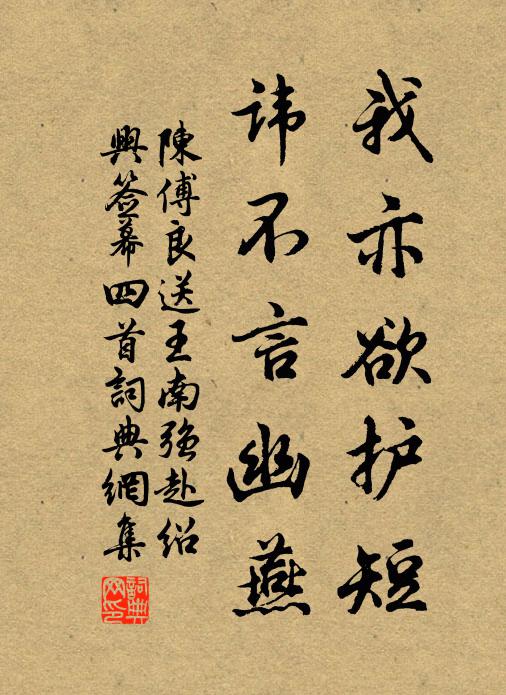 我亦欲护短
讳不言幽燕
陳傅良送王南強赴绍
興簽幕四首詞典網集
詞典
网印